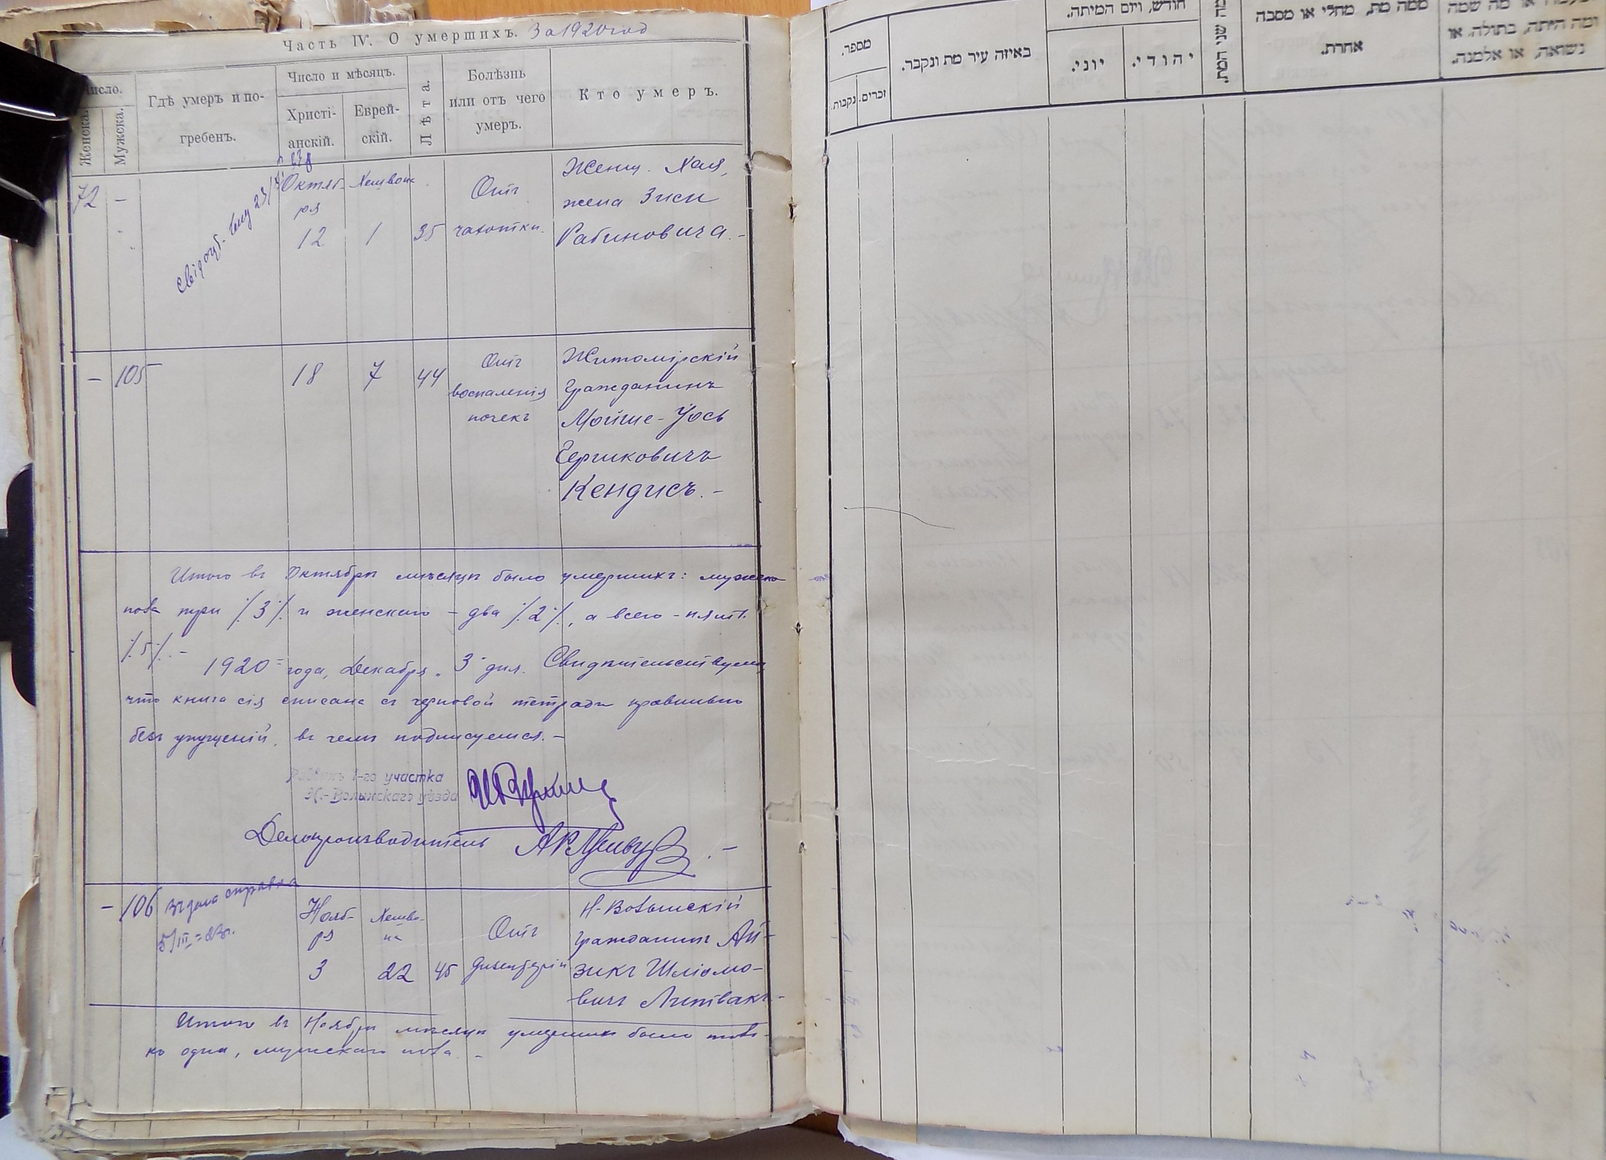 Часть IV. О умершихъ. За 1920 год
Число.
Женска.
Мужска.
Гдѣ умеръ и по-
гребенъ.
Число и мѣсяцъ.
Христі-
анскій.
Еврей-
скій.
Лѣта.
Болѣзнь
или отъ чего
умеръ.
Кто умеръ.
72 –
Октяб-
ря
12
1
35
Отъ
чахотки.
Женщ. Хая,
жена Зиси
Рабиновича. –
– 105
18
7
44
Отъ
воспаленія
почекъ
Житомірскій
гражданинъ
Мойше-Іось
Гершковичъ
Кендисъ. –
Итого въ Октябрѣ мѣсяцѣ было умершихъ: мужско
пола три /.3./. и женскаго – два /.2./., а всего – пять
/.5./. –
1920 года, Декабря 3 дня. Свидѣтельствуемъ,
что книга сія списана съ черновой тетради правильно
безъ упущеній, въ чемъ подписуемся. –
Раввинъ 1-го участка
Н.-Волынскаго уѣзда
Делопроизводитель
– 106
Выдана справка
5/III – 23г.
Нояб-
ря
3
Хешво-
на
22
45
Отъ
дизентеріи
Н-Волынскій
гражданинъ Ай-
зикъ Шліомо-
вичъ Литвакъ –
Итого въ Ноябрѣ мѣсяцѣ умершихъ было толь-
ко одна, мужскаго пола. –
מספר.
זכרים.
נקבות.
באיזה עיר מת ונקבר.
חודש, ויום המיתה.
יוני.
יהודי.
ממה מת, מחלי או מסבה
אחרת.
ומה היתה, בתולה, או
נשואה, או אלמנה.